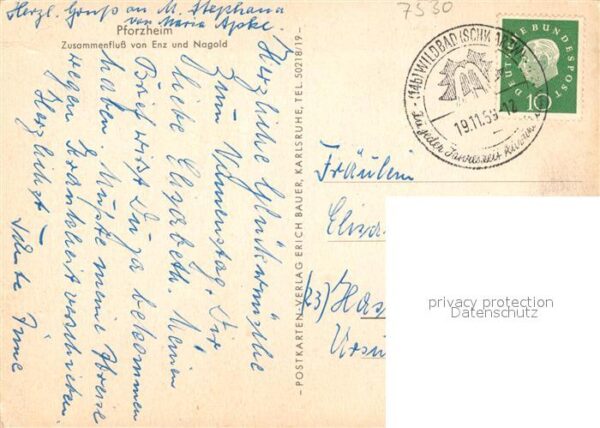 Herzl. Gruß an M. Stephana
von Maria Apkel.
Pforzheim
Zusammenfluß von Enz und Nagold
Herzliche Glückwünsche
zum Namenstag. Dir
liebe Elisabeth. Meinen
Brief wirst Du ja bekommen
haben. Mußte meine Abreise
wegen Krankheit verschieben.
Herzlichst –
Tante Fine
– POSTKARTEN-VERLAG ERICH BAUER, KARLSRUHE, TEL. 50218/19 –
7530
(14b) WILDBAD (SCHWARZW)
19.11.59-12
Zu jeder Jahreszeit
DEUTSCHE BUNDESPOST
10
Fräulein
Elisa
(23) Has
Ursu
privacy protection
Datenschutz